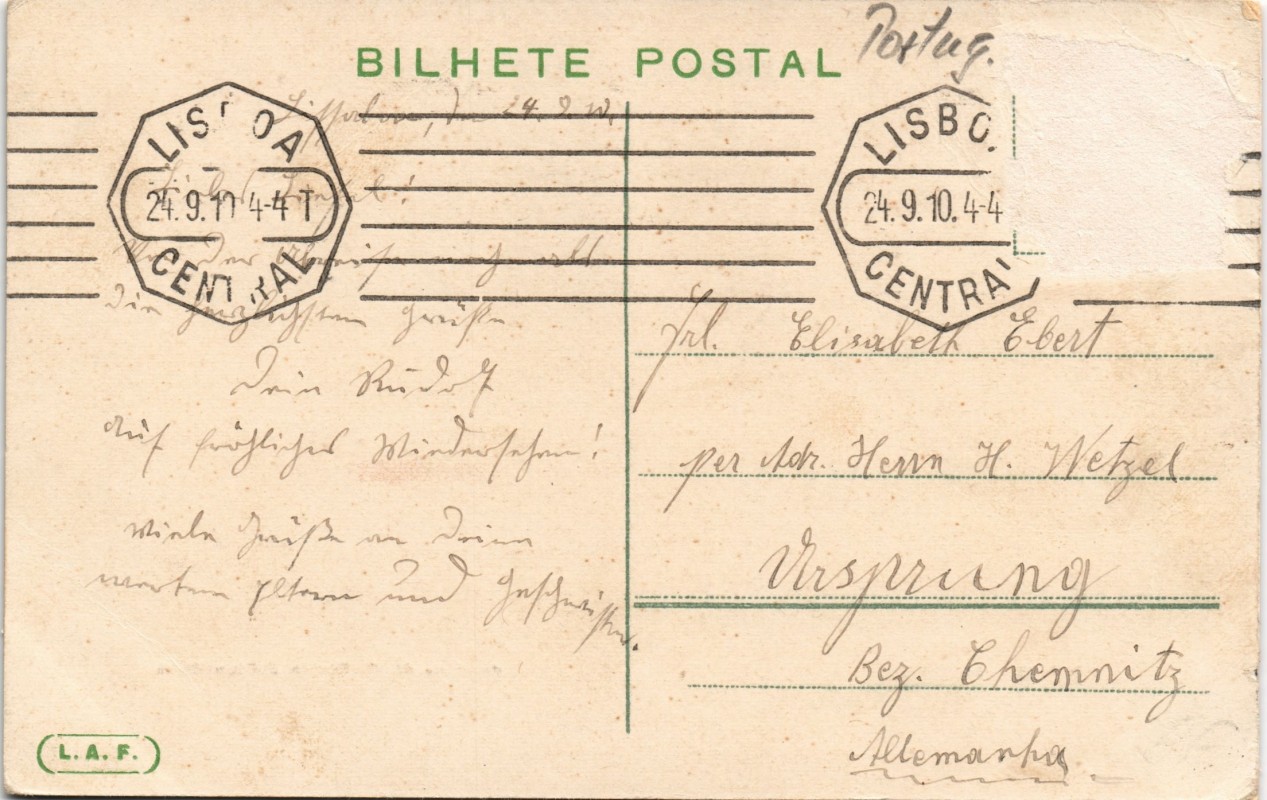 BILHETE POSTAL
Portug.
LISBOA
24.9.10 4-4 T
CENTRAL
LISBO
24.9.10. 4-4
CENTRA
Lissabon, den 24. 9. 10.
Vor der Abreise noch
die herzlichsten Grüße
Dein Rudolf
Auf fröhliches Wiedersehen!
Viele Grüße an Deine
werten Eltern und Geschwister.
Frl. Elisabeth Ebert
per Adr. Herrn H. Wetzel
Ursprung
Bez. Chemnitz
Allemanha
L. A. F.